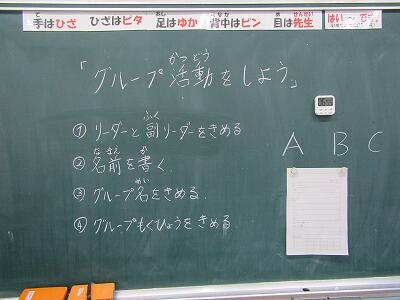 手はひざ ひざはピタ 足はゆか 背中はピン 目は先生 はい
「グループ活動をしよう」
①リーダーと副リーダーをきめる
②名前を書く。
③グループ名をきめる。
④グループもくひょうをきめる
A B C